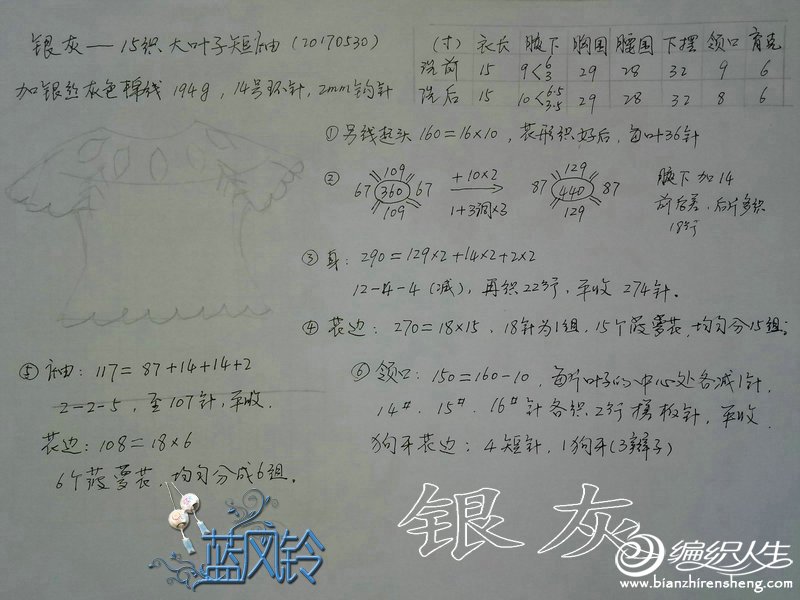 银灰——15织大叶子短袖(20170530)
加银丝灰色棉线194g,14号环针,2mm钩针
(寸) 衣长 腋下 胸围 腰围 下摆 领口 育克
洗前 15 9<6 3 29 28 32 9 6
洗后 15 10<6.5 3.5 29 28 32 8 6
①另线起头160=16×10,花形织好后,每叶36针
② 109 67 360 67 109 +10×2 1+3调×3 129 87 440 87 129 腋下加14
前后差,后片多织
18行
③身:290=129×2+14×2+2×2
12-4-4(减),再织22行,平收274针.
④花边:270=18×15,18针为1组,15个菠萝花,均匀分15组;
⑤袖:117=87+14+14+2
2-2-5,至107针,平收.
花边:108=18×6
6个菠萝花,均匀分成6组.
⑥领口:150=160-10,每片叶子的中心处各减1针.
14#.15#.16#针各织2行搓板针,平收.
狗牙花边:4短针,1狗牙(3辫子)
蓝风铃
银灰
编织人生
www.bianzhirensheng.com